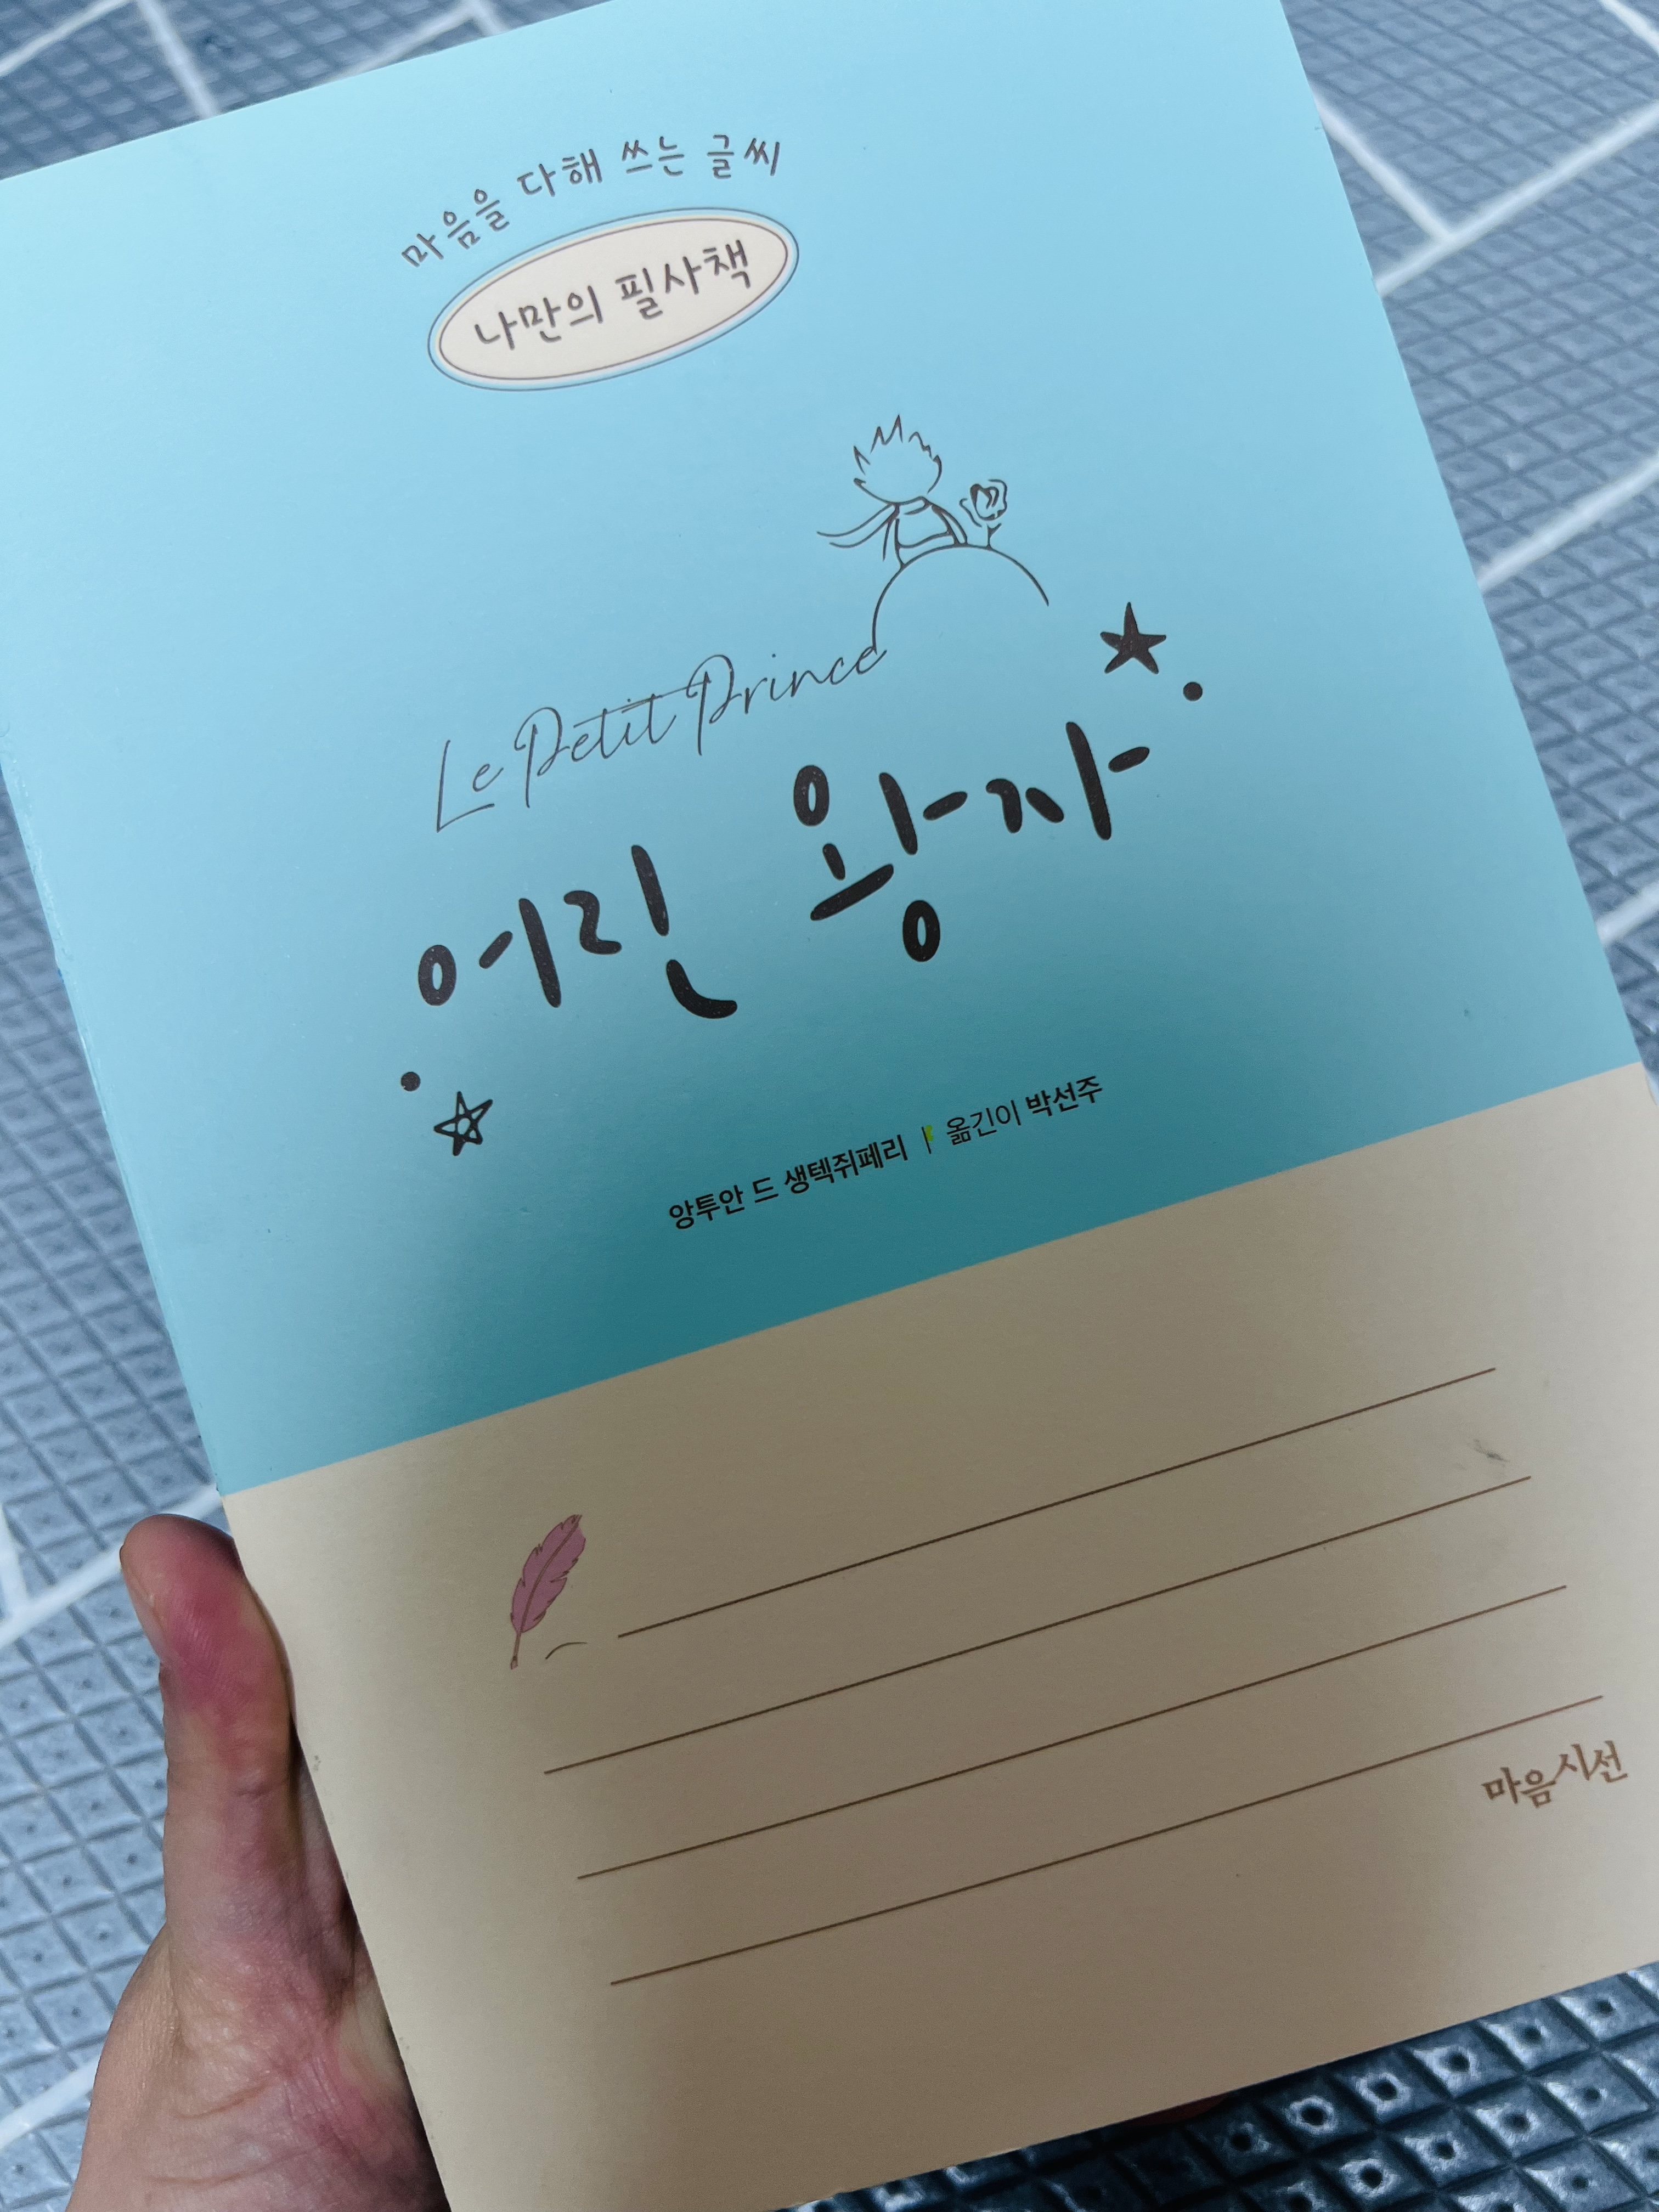 마음을 다해 쓰는 글씨
나만의 필사책
Le Petit Prince
어린 왕자
앙투안 드 생텍쥐페리 | 옮긴이 박선주
마음시선